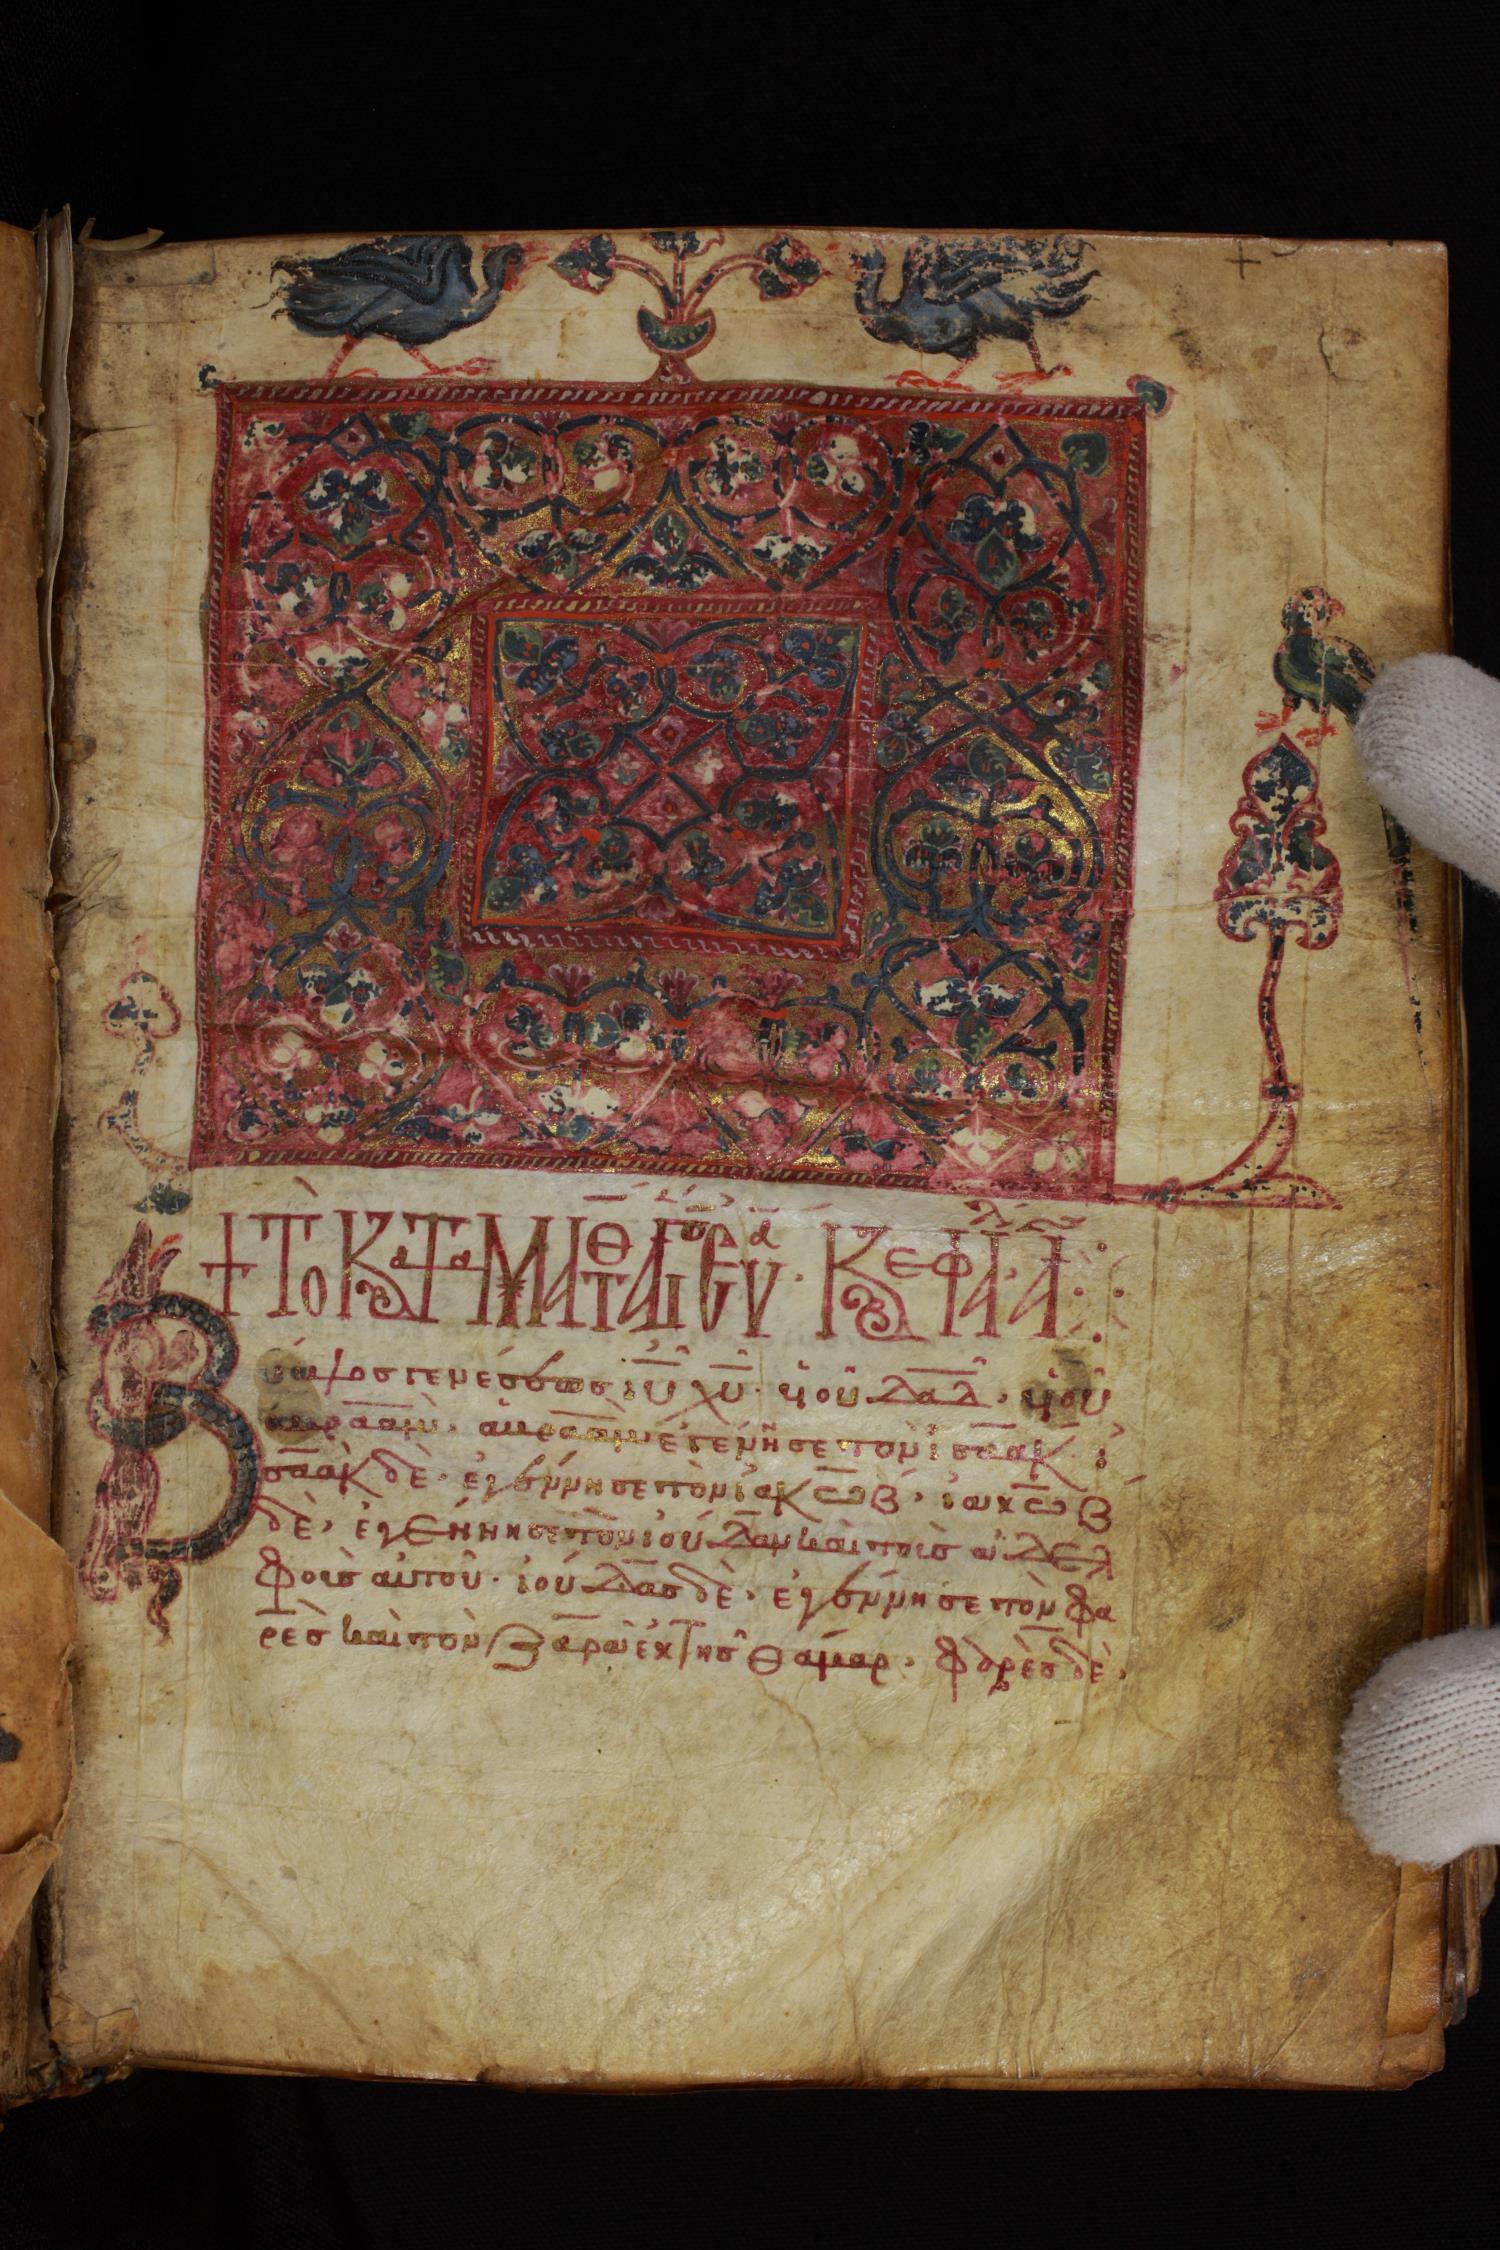 + Τὸ Κατὰ Ματθαῖον ἅγιον Εὐα. Κεφάλ. Α
Βίβλος γενέσεως ιῦ χῦ. υἱοῦ δαδ. υἱοῦ
ἀβραάμ. ἀβραὰμ ἐγέννησε τὸν ἰσαάκ. ἰ
σαὰκ δὲ. ἐγέννησε τὸν ἰακώβ. ἰακὼβ
δὲ. ἐγέννησε τὸν ἰούδαν καὶ τοὺς ἀδελ
φοὺς αὐτοῦ. ἰούδας δὲ. ἐγέννησε τὸν φα
ρὲς καὶ τὸν ζαρὰ ἐκ τῆς θαμαρ. φαρὲς δὲ.